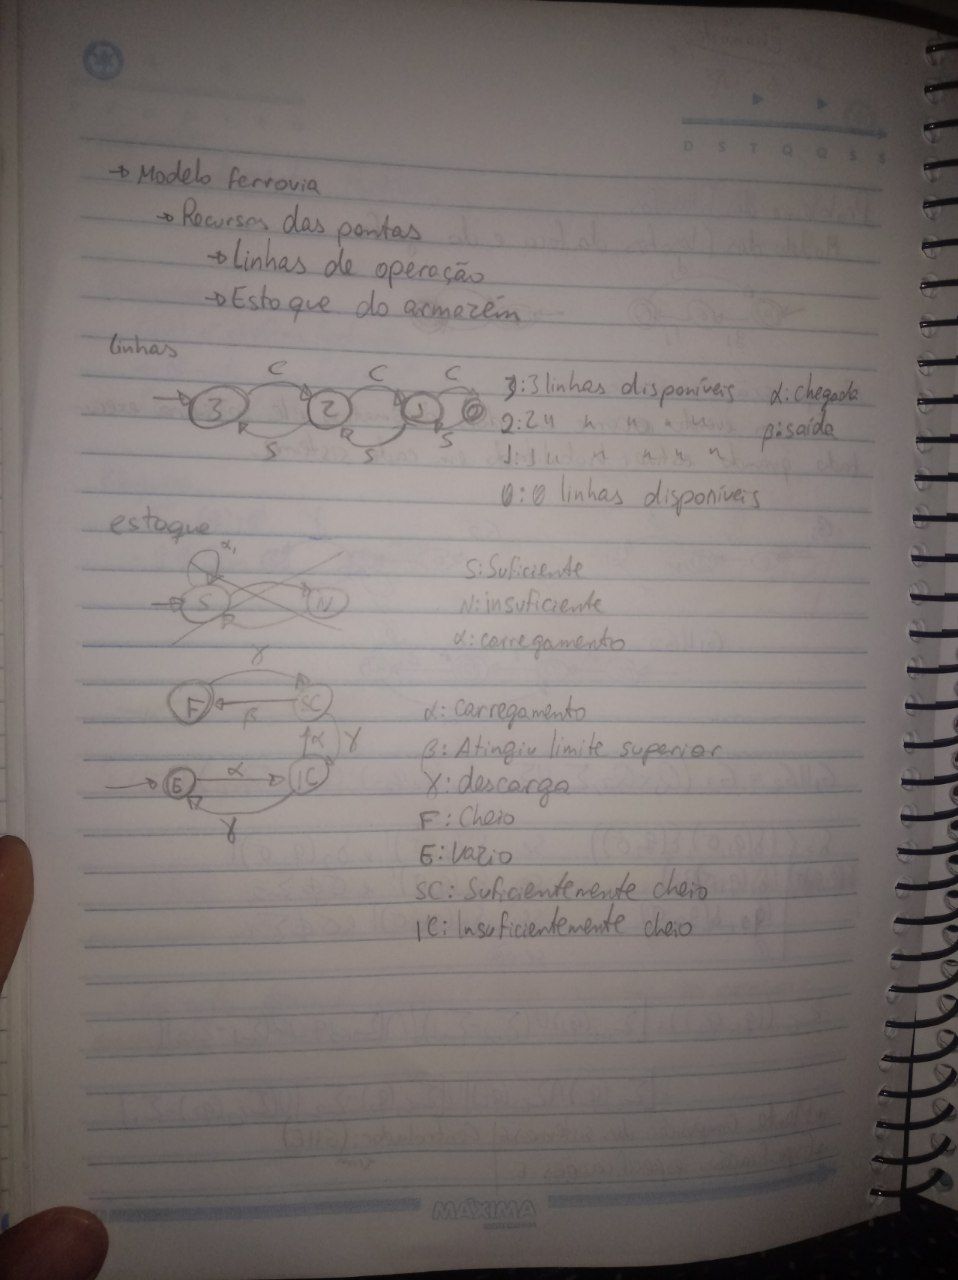 → Modelo ferrovia
→ Recursos das pontas
→ Linhas de operação
→ Estoque do armazém
D S T Q Q S S
linhas
C C C
3 2 1 0
S S S
3: 3 linhas disponíveis α: chegada
2: 2 " " " " " β: saída
1: 1 " " " " "
0: 0 linhas disponíveis
estoque
α1
S N
S: Suficiente
N: insuficiente
α: carregamento
γ
F SC
β
α γ
E α IC
γ
α: carregamento
β: Atingiu limite superior
γ: descarga
F: Cheio
E: Vazio
SC: Suficientemente cheio
IC: Insuficientemente cheio
MÁXIMA